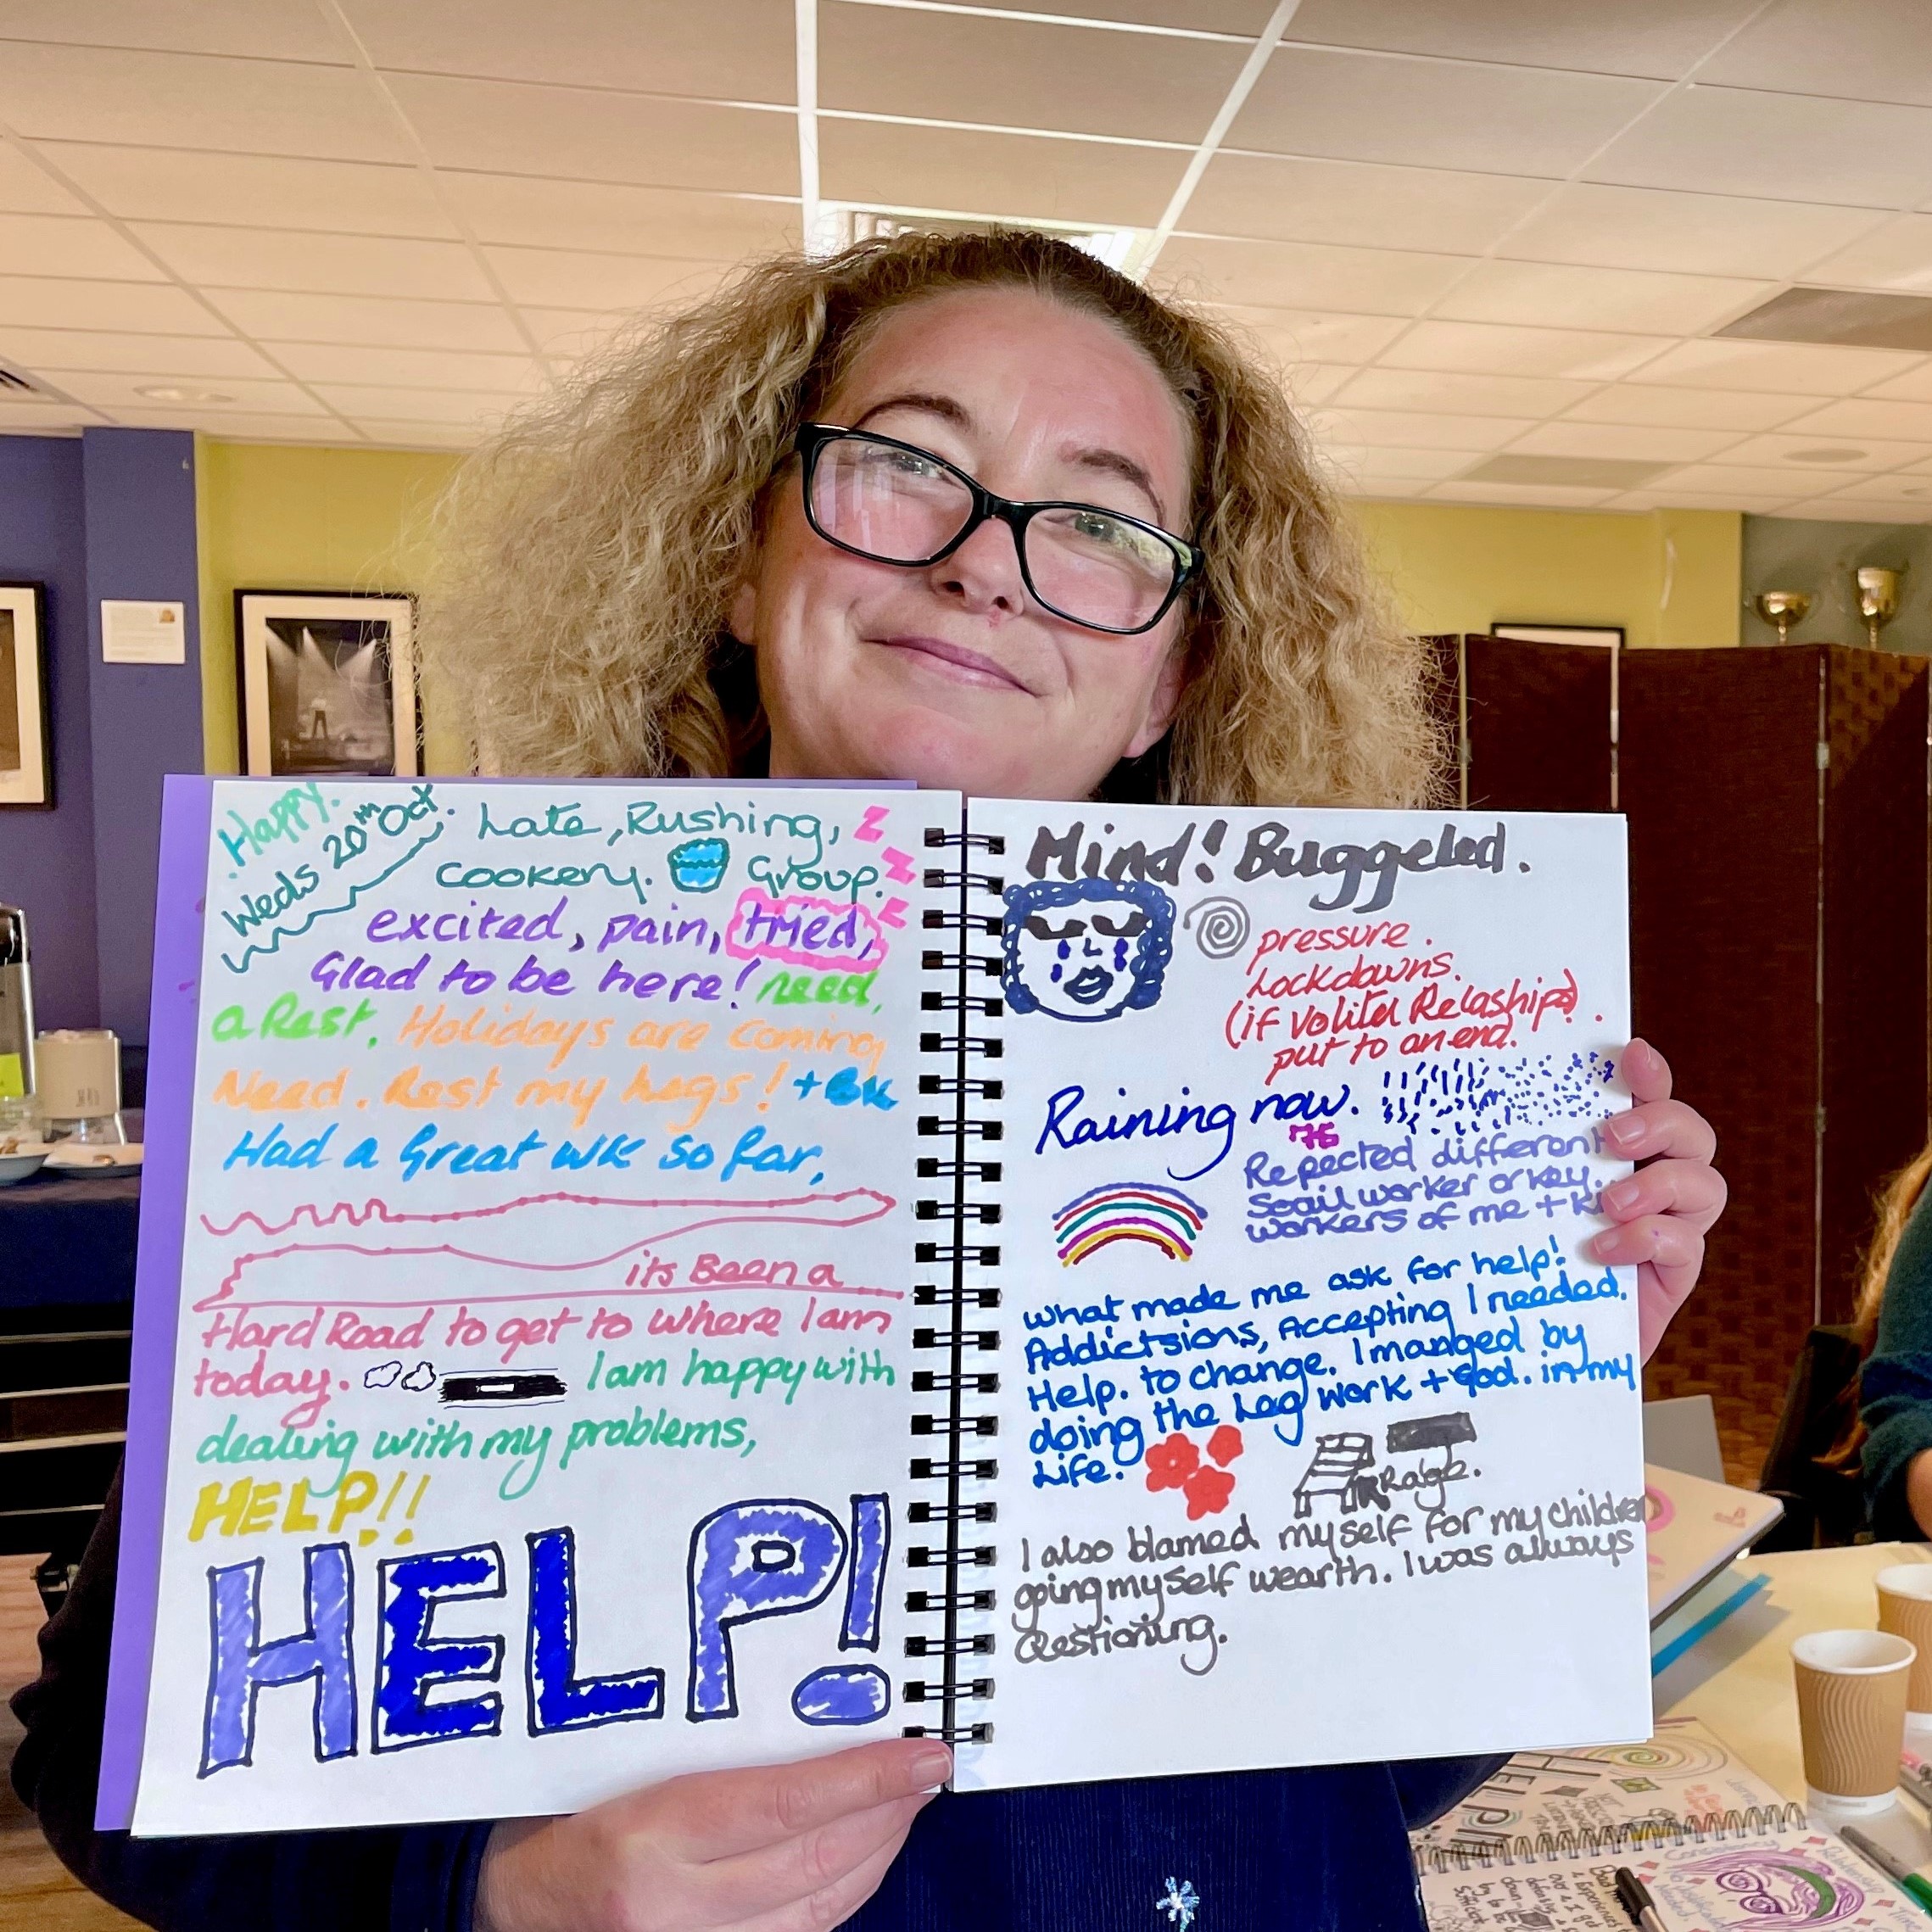 Happy.
Weds 20th Oct.
Late, Rushing, z
Cookery. Group. z
z
excited, pain, tried,
Glad to be here! need,
a Rest. Holidays are coming,
Need. Rest my Legs! + BK
Had a Great wk so far,
its Been a
Hard Road to get to where I am
today. I am happy with
dealing with my problems,
HELP!!
HELP!
Mind! Buggeled.
pressure.
Lockdowns.
(if Volitel Relaships).
put to an end.
Raining now.
Repected different
Soail worker or key.
workers of me +
what made me ask for help!
Addictsions, Accepting I needed.
Help. to change. I manged by
doing the Leg work + God. in my
Life.
Raige.
I also blamed myself for my children
going myself wearth. I was always
Qestioning.